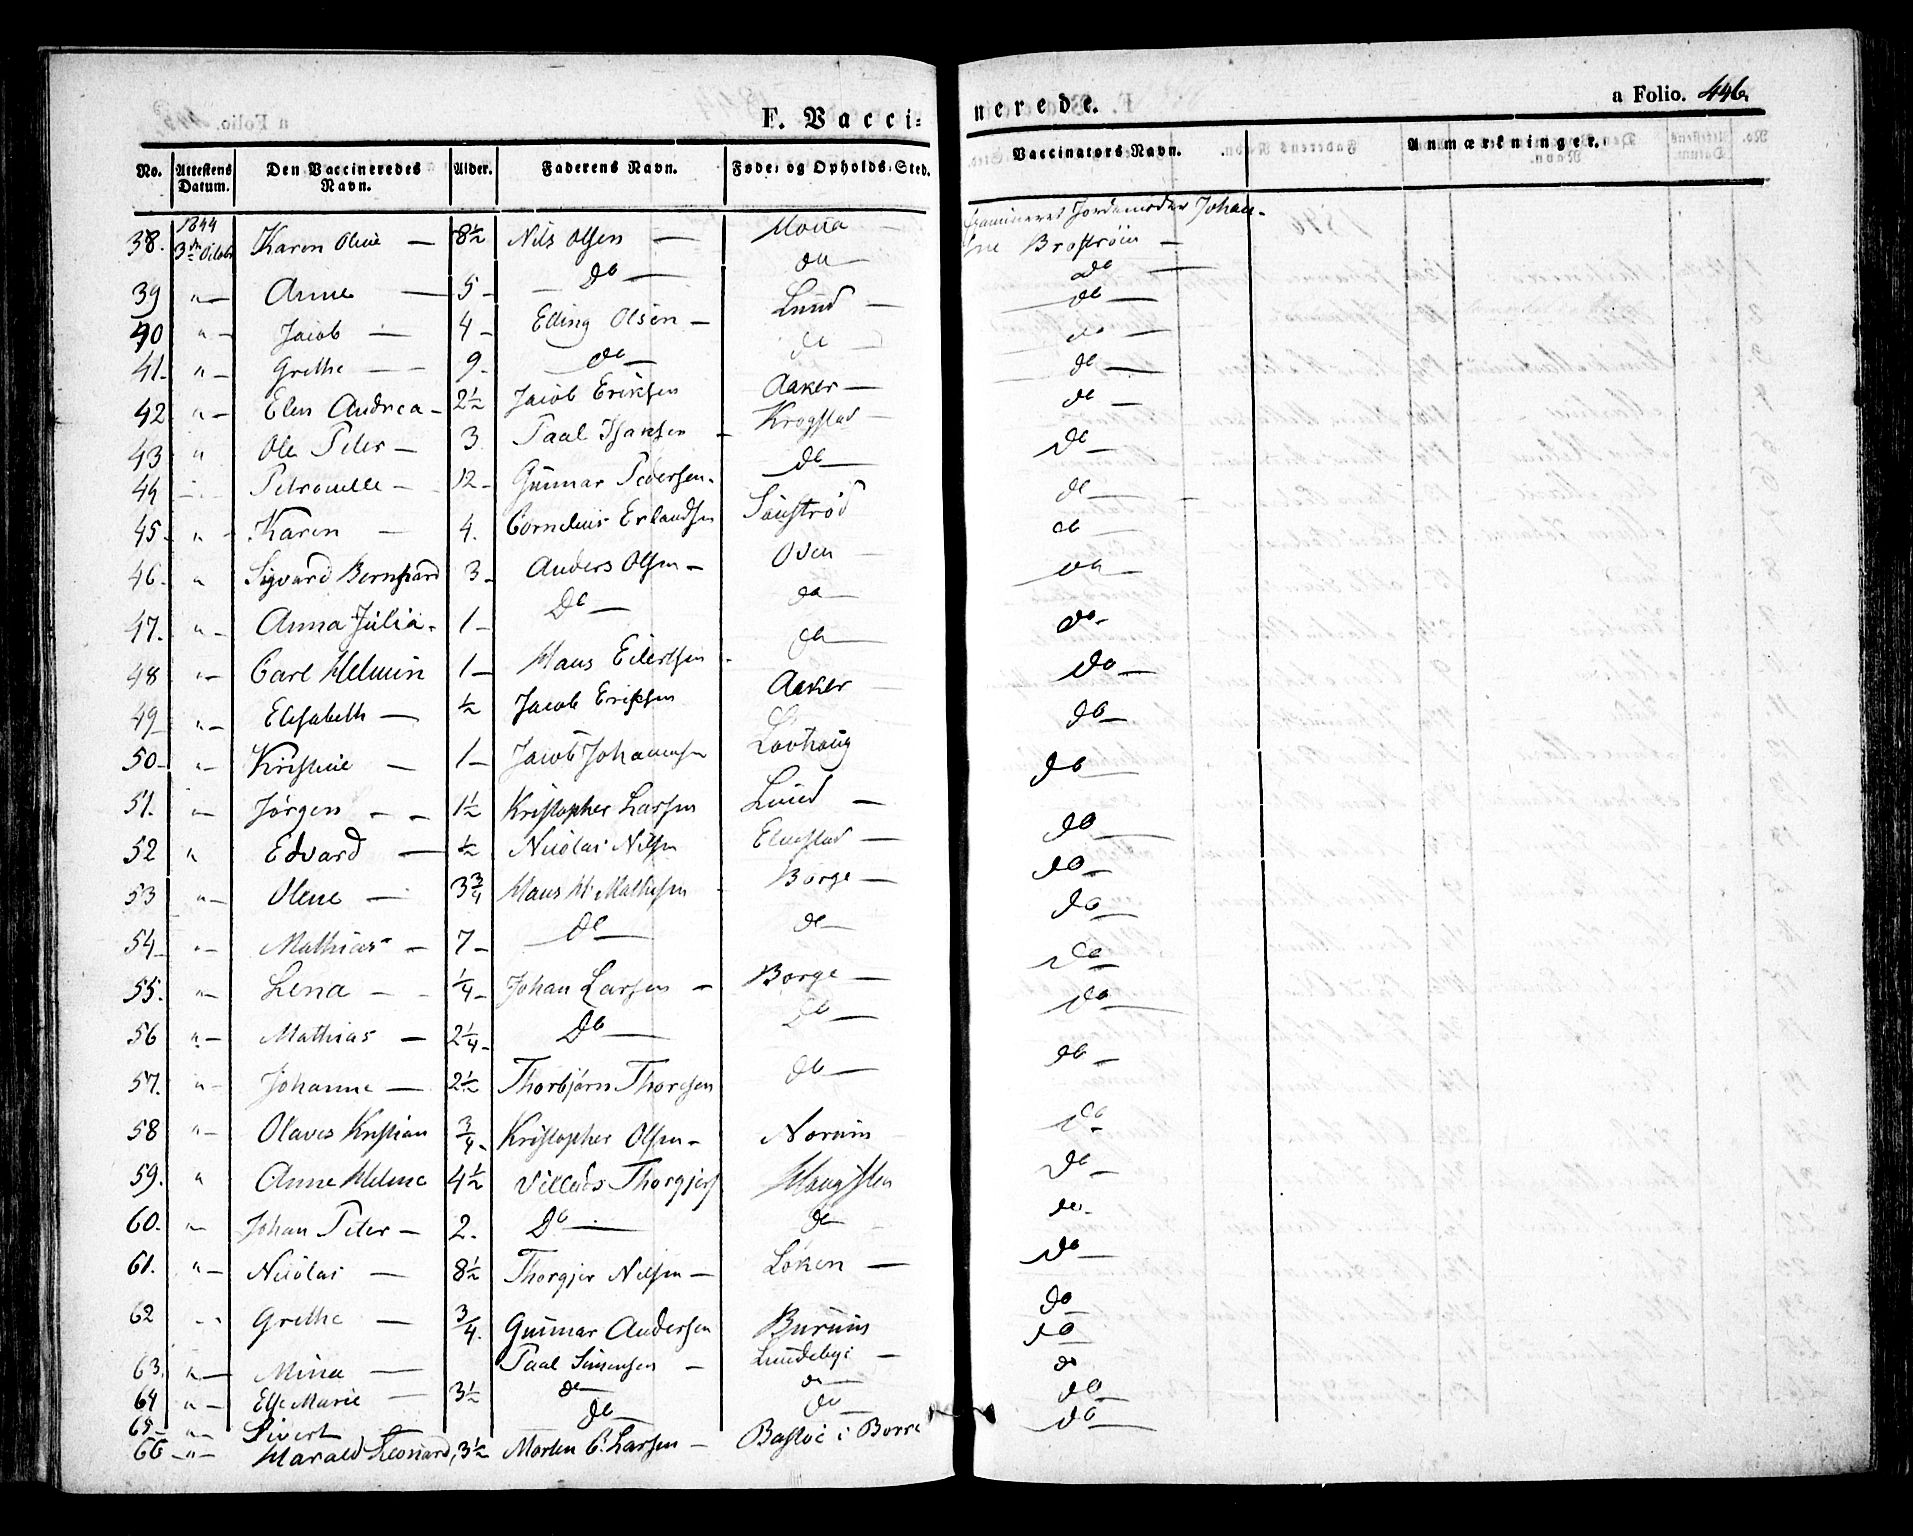 F. Vacci-
nerede.
a Folio. 446.
No. Attestens Datum. Den Vaccineredes Navn. Alder. Faderens Navn. Føde- og Opholds-Sted. Vaccinators Navn. Anmærkninger.
1844
38. 3die Octobr Karen Oline — 8½ Nils Olsen — Moúa — Examineret Jordemoder Johan-
ne Brostrøm —
39 " — Anne — 5 — do — do — do —
40 " — Jacob — 4 — Elling Olsen — Lund — do —
41. " — Grethe — 9. do — do — do —
42 " — Elen Andrea — 2½ Jacob Eriksen Aaker — do —
43 " Ole Peter — 3 Paal Isaksen — Krogstad — do —
44 — Petronelle — 12 — Gunnar Pedersen. do — do —
45. " — Karen — 4. Cornelius Erlandsen do —
46. " Sigvard Bernhard 3 — Anders Olsen — Oden do
47. " — Anna Julia. 1 — Do — do do —
48 " — Carl Helmin 1 — Hans Eilertsen do — do —
49 " — Elisabeth — ½ Jacob Eriksen Aaker — do —
50 — " — Kristine — 1 — Jacob Johannesen Løvhaug do —
51. " — Jørgen — 1½ Kristopher Larsen Lund — do —
52 " Edvard — ½ Nicolai Nilsen Elvestad — do —
53 " — Olene — 3¾ Hans M. Mathisen Borge — do —
54 " — Mathias — 7 — do — do — do —
55. " — Lena — ¼ — Johan Larsen — Borge — do —
56 " — Mathias — 2¼ — Do — do — do —
57. " — Johanne — 2½ Thorbjørn Thoresen do — do —
58 " — Olaves Kristian ¾ — Kristopher Olsen — Norum do —
59. " Anne Helene 4½ Villads Thorgjers Haugsten do —
60. " — Johan Peter — 2. Do — do do —
61. " — Nicolai — 8½ Thorgjer Nilsen — Løken — do —
62 " — Grethe — ¾. Gunnar Andersen Burum do
63. " — Mina — Paal Simensen — Lundeby — do
64 " — Else Marie — 3½ do — do — do
65 — " — Sivert do do — do —
66 — " — Harald Leonard, 3½ Morten C. Larsen — Bastøe i Borre do —